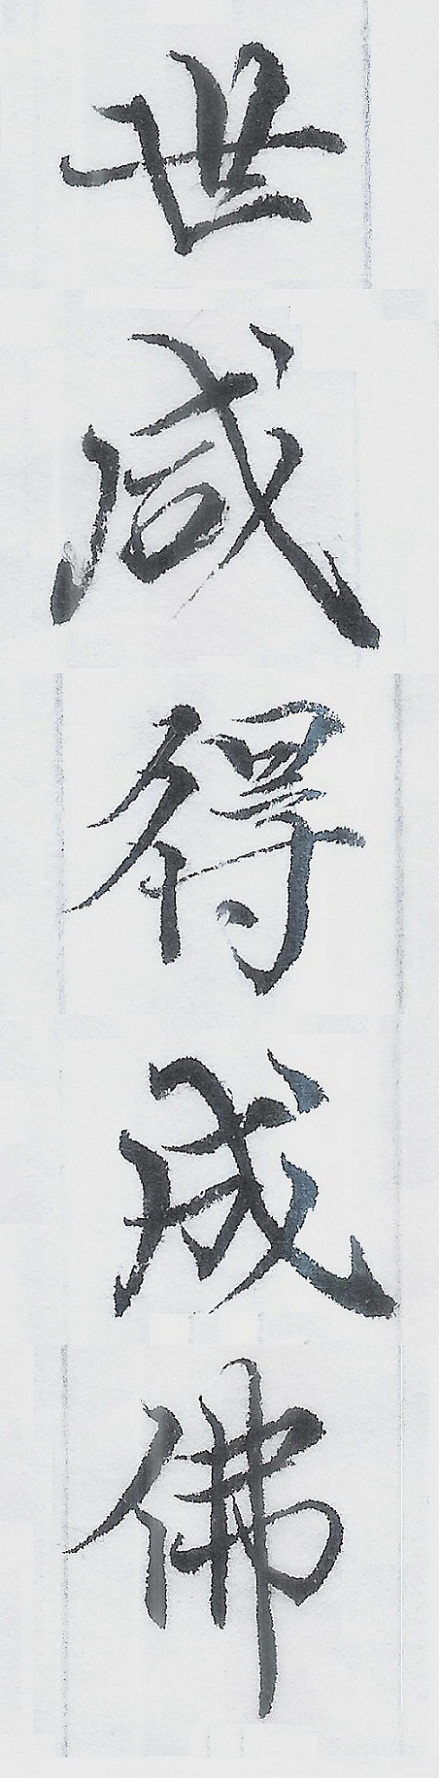 世咸得成佛